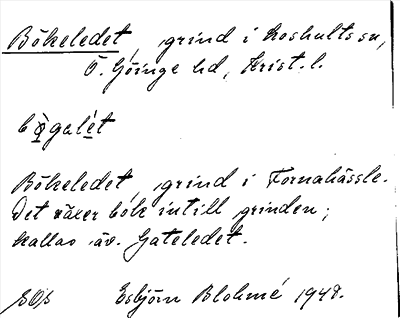 Bökeledet, grind i Loshults sn,
Ö. Göinge hd, Krist. l.
bø̀galét
Bökeledet, grind i Tornahässle.
Det växer bok intill grinden;
kallas äv. Gateledet.
Esbjörn Blohmé 1948.